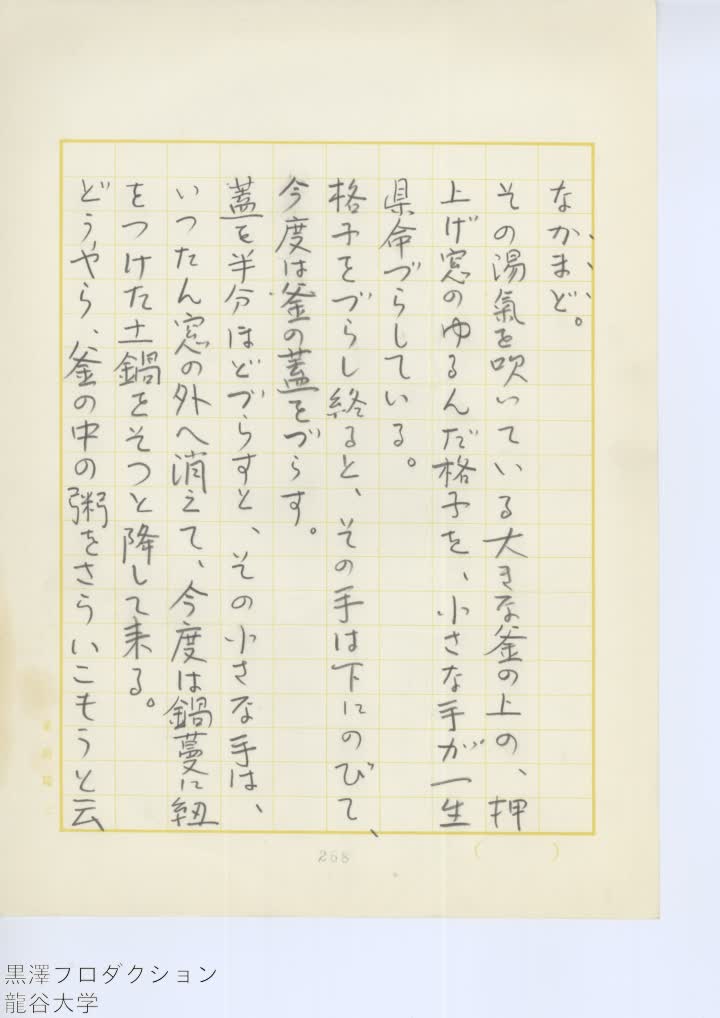 なかまど。
その湯氣を吹いている大きな釜の上の、押
上げ窓のゆるんだ格子を、小さな手が一生
県命づらしている。
格子をづらし終ると、その手は下にのびて、
今度は釜の蓋をづらす。
蓋を半分ほどづらすと、その小さな手は、
いつたん窓の外へ消えて、今度は鍋蔓に紐
をつけた土鍋をそつと降して来る。
どうやら、釜の中の粥をさらいこもうと云
268
黒澤プロダクション
龍谷大学